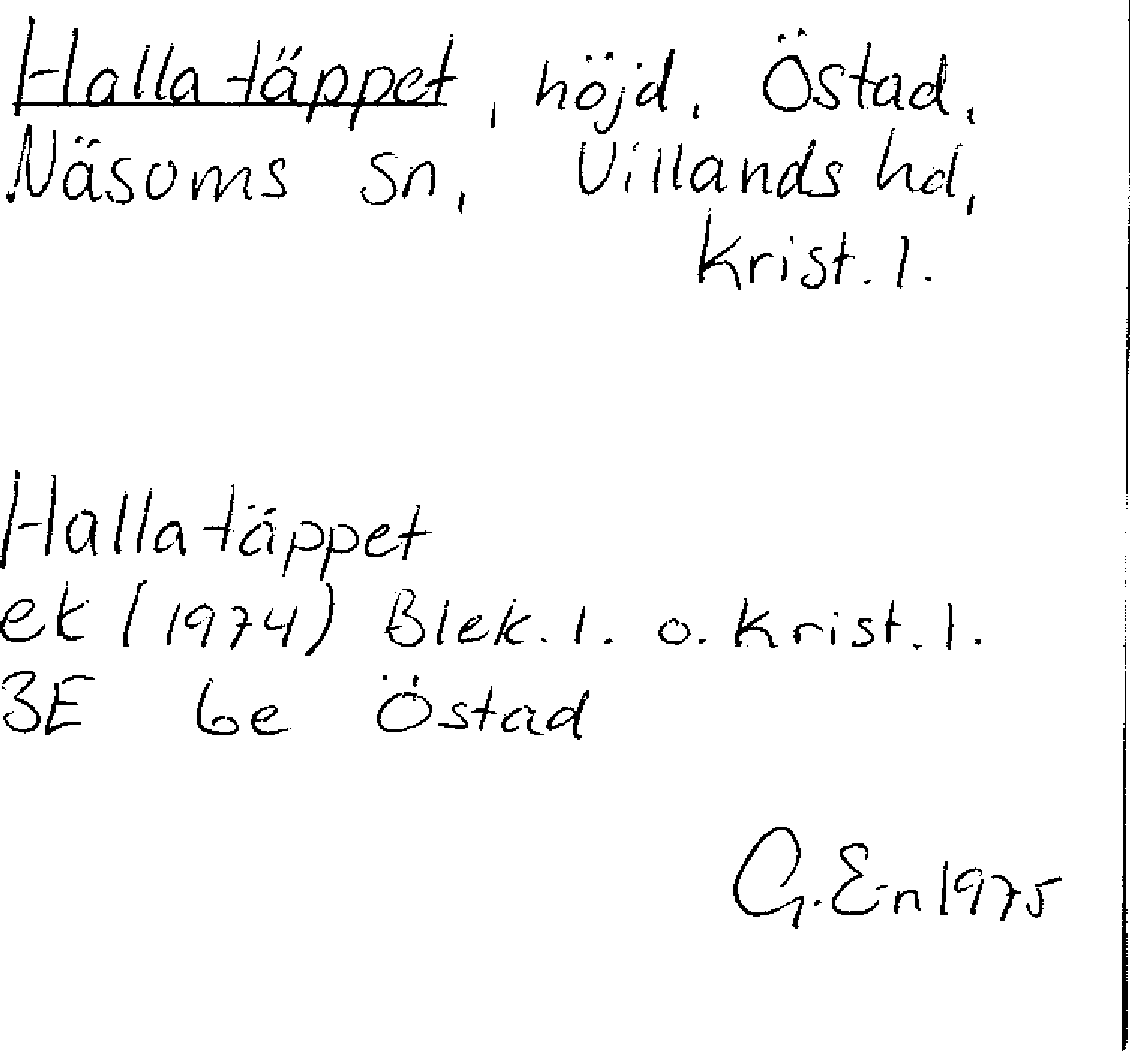 Hallatäppet, höjd, Östad,
Näsums sn, Villands hd,
Krist. l.
Hallatäppet
ek (1974) Blek. l. o. Krist. l.
3E 6e Östad
G. En 1975